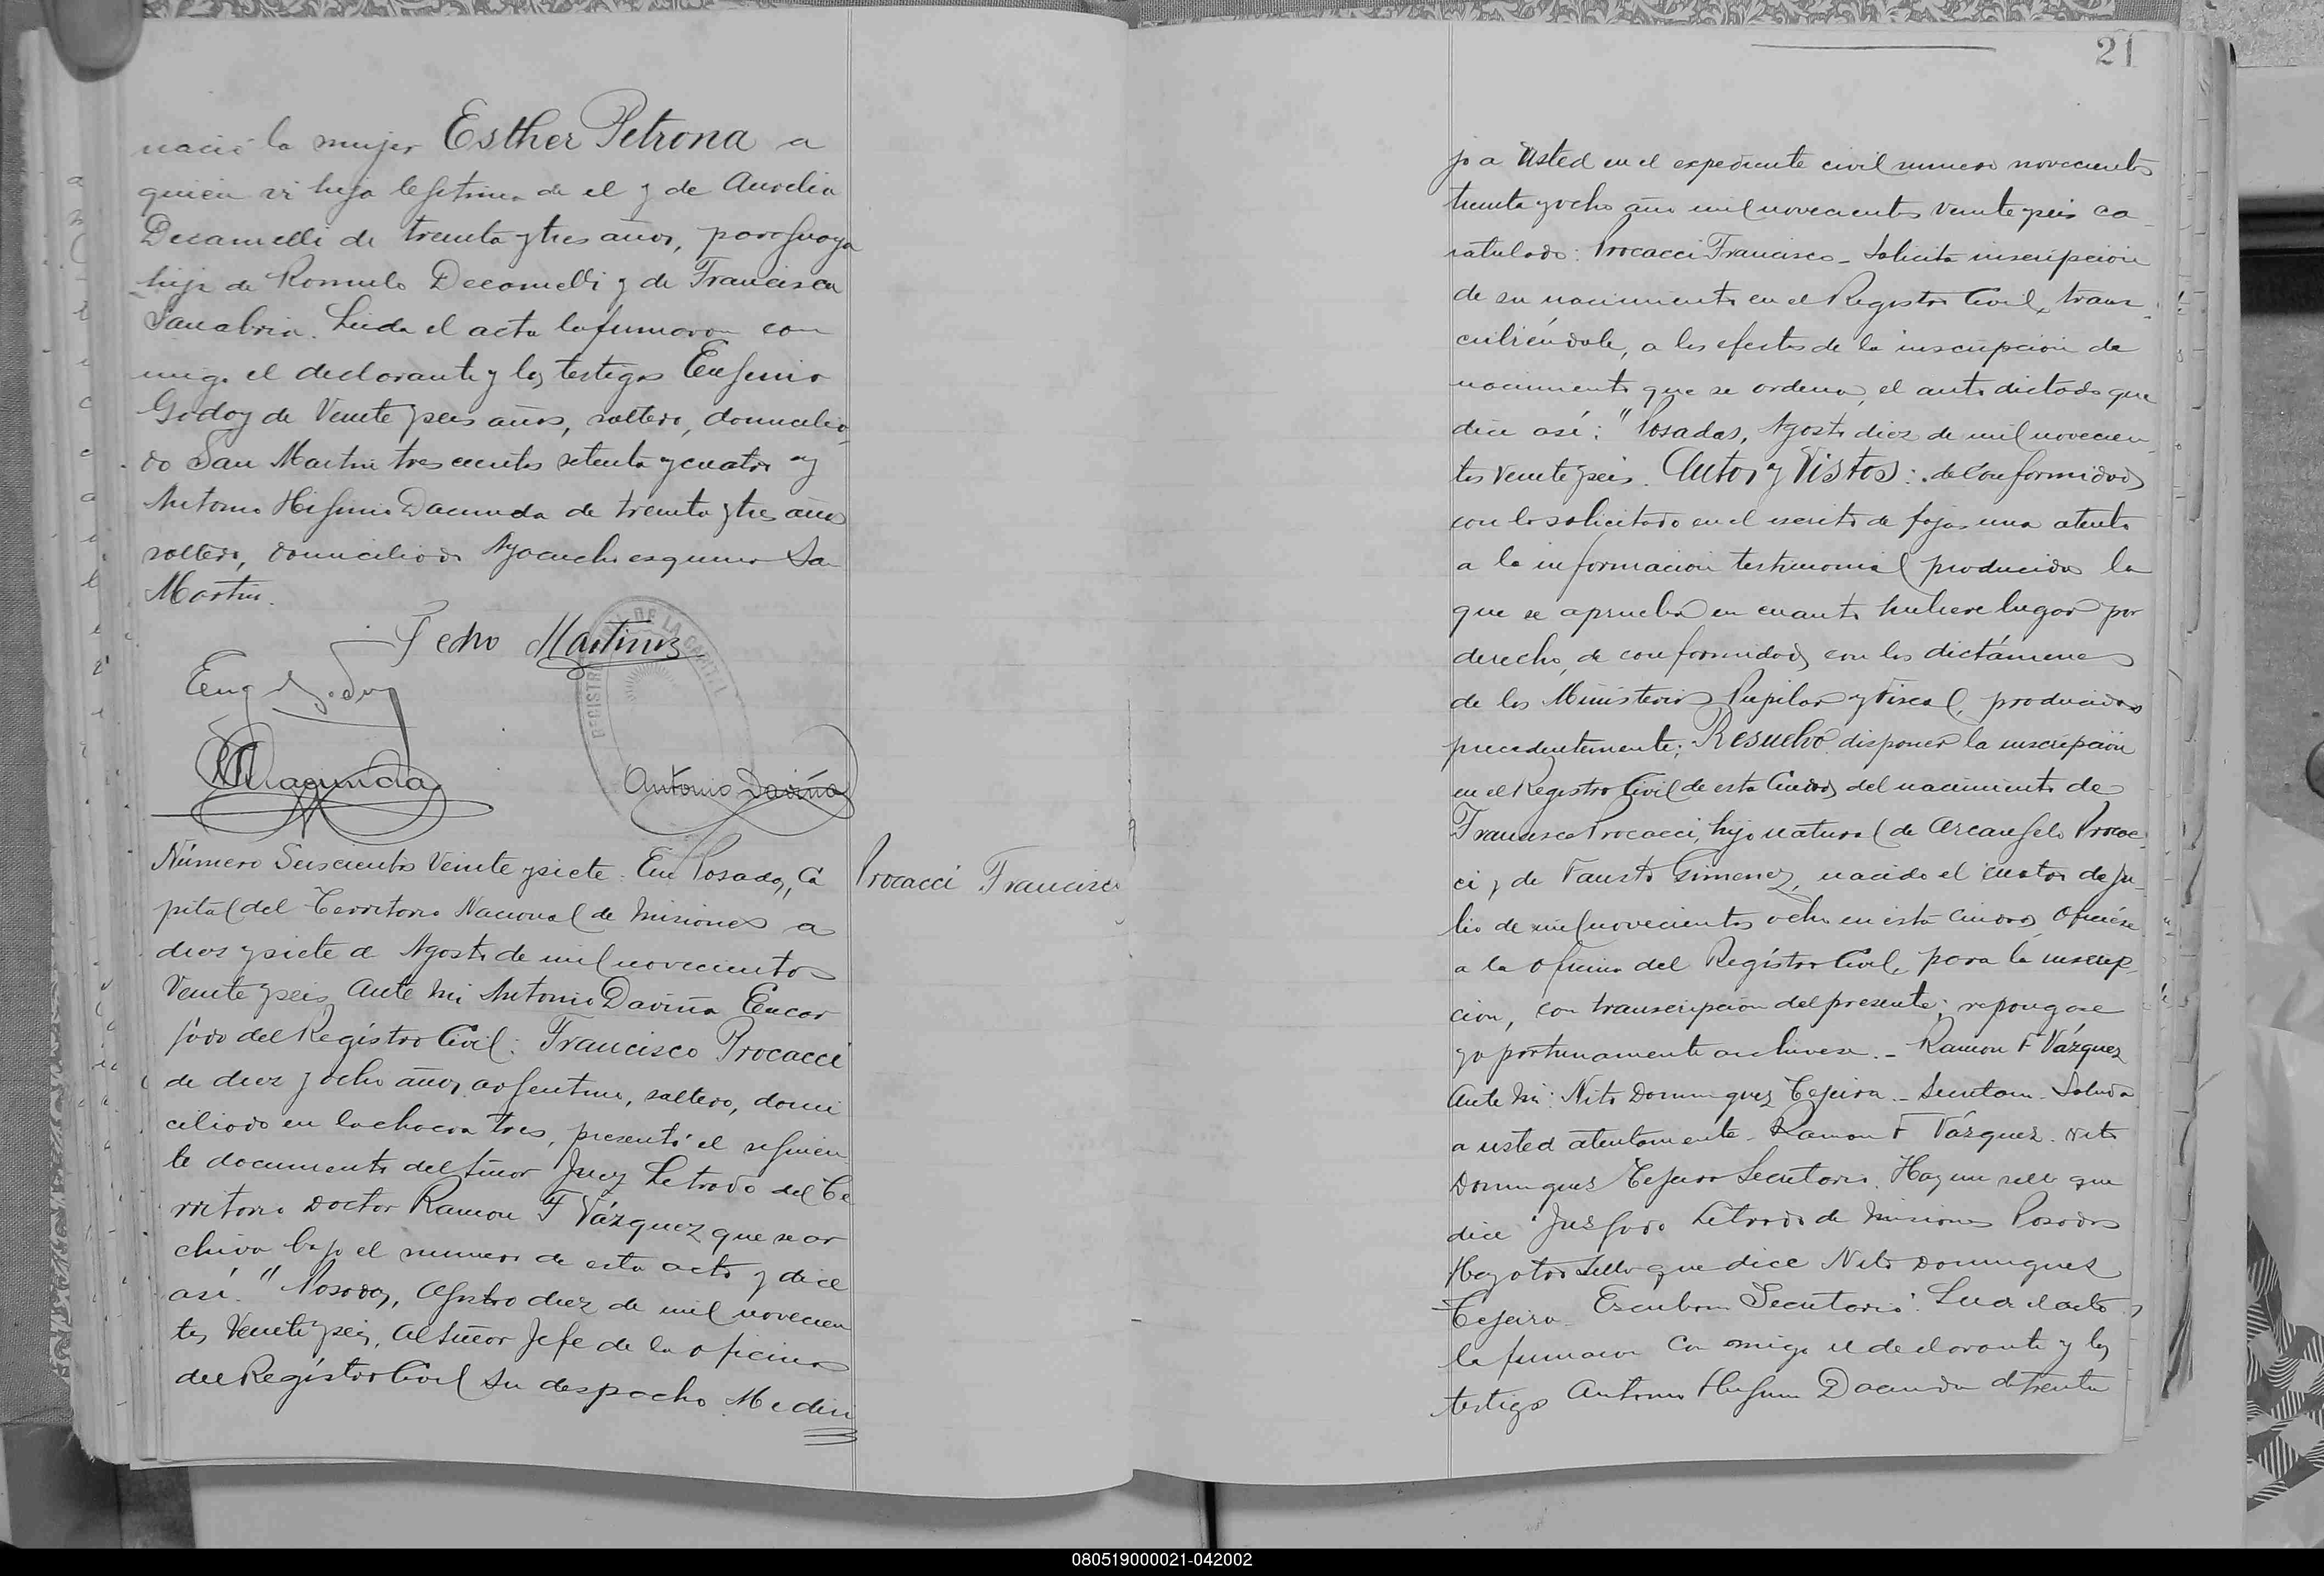 nació la mujer Esther Petrona a
quien vi hija lejitima de el y de Aurelia
Decamelli de treinta y tres años, paraguaya
hija de Romulo Decamelli y de Francisca
Sanabria. Leida el acta la firmaron con
migo el declarante y los testigos Eujenio
Godoy de Veinte y seis años, soltero, domicilia
do San Martin trescientos setenta y cuatro y
Antonio Hijinio Dacunda de treinta y tres años
soltero, domiciliado Ayacucho esquina San
Martin.
Pedro Martinez
Eug Godoy
Dacunda
Antonio Daviña
Número Seiscientos Veinte y siete. En Posadas, Ca
pital del Territorio Nacional de Misiones a
diez y siete de Agosto de mil novecientos
Veinte y seis, Ante mi Antonio Daviña Encar
jado del Registro Civil: Francisco Procacci
de diez y ocho años, arjentino, soltero, domi
ciliado en la chacra tres, presentó el siguien
te documento del Señor Juez Letrado del Te
rritorio Doctor Ramon F Vázquez que se ar
chiva bajo el numero de esta acta y dice
así: " Posadas, Agosto diez de mil novecien
tos Veinte y seis, Al Señor Jefe de la oficina
del Registro Civil Su despacho. Me diri
Procacci Francisco
21
jo a Usted en el expediente civil numero novecientos
treinta y ocho año mil novecientos veinte y seis ca
ratulado: Procacci Francisco - Solicita inscripción
de su nacimiento en el Registro Civil, trans
cribiéndole, a los efectos de la inscripción de
nacimiento que se ordena, el auto dictado que
dice así: " Posadas, Agosto diez de mil novecien
tos Veinte y seis. Autos y Vistos: de conformidad
con lo solicitado en el escrito de fojas una atento
a la información testimonial producida la
que se aprueba en cuanto hubiere lugar por
derecho, de conformidad con los dictámenes
de los Ministerios Pupilar y Fiscal, producidos
precedentemente; Resuelvo: disponer la inscripción
en el Registro Civil de esta Ciudad del nacimiento de
Francisco Procacci, hijo natural de Arcangelo Procac
ci y de Fausta Gimenez, nacido el cuatro de Ju
lio de mil novecientos ocho en esta ciudad, Ofíciese
a la oficina del Registro Civil, para la inscrip
ción, con transcripción del presente; repongase
y oportunamente archivese. - Ramon F Vázquez
Ante mi: Nito Dominguez Tejeira - Secretario - Saluda
a usted atentamente - Ramon F Vázquez. Nito
Dominguez Tejeira Secretario. Hay un sello que
dice "Juzgado Letrado de Misiones Posadas
Hay otro sello que dice Nito Dominguez
Tejeira - Escribano Secretario". Leida el acta
la firmaron con migo el declarante y los
testigos Antonio Hijinio Dacunda de treinta
080519000021-042002